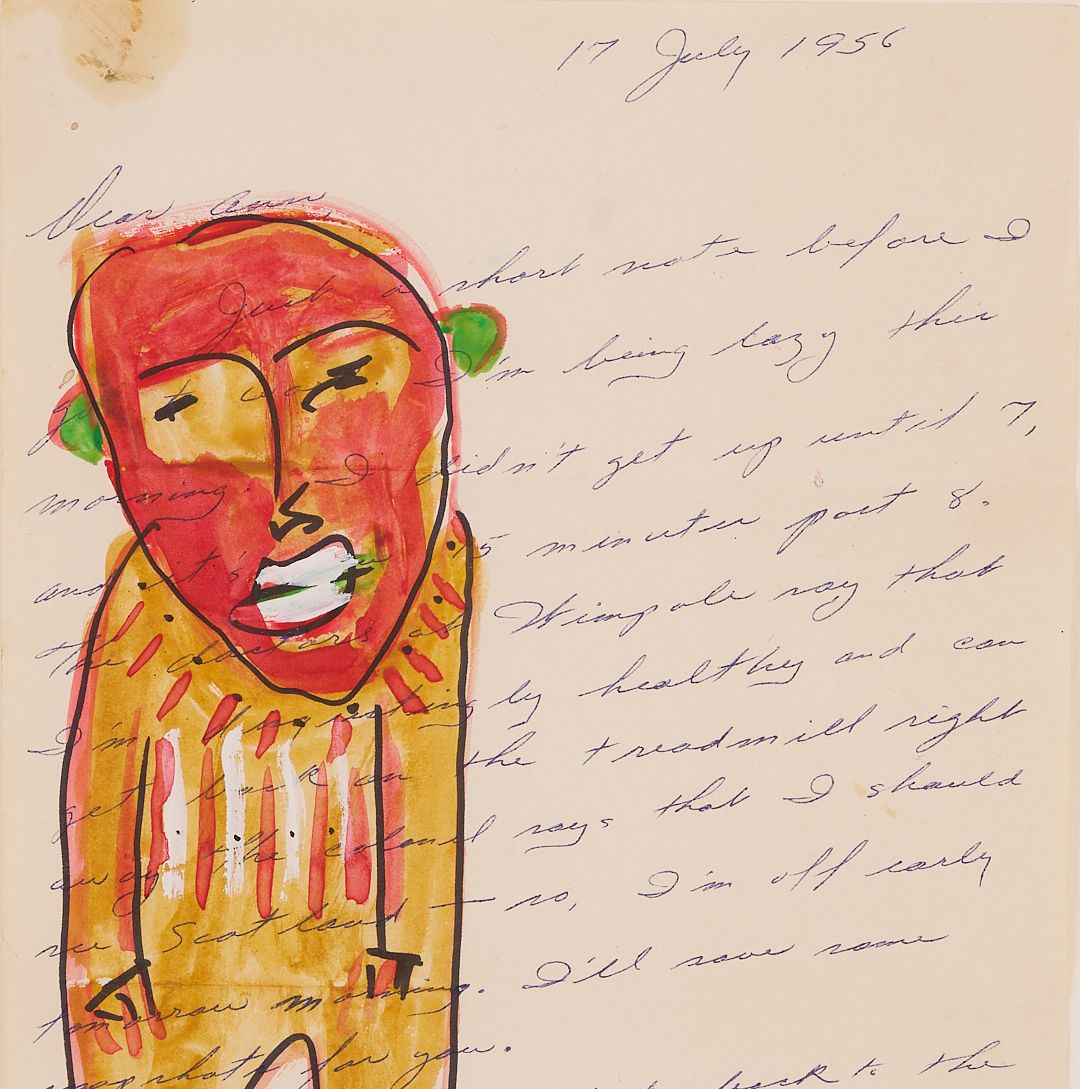 17 July 1956
Dear Ann,
Just a short note before I
go to work. I'm being lazy this
morning. I didn't get up until 7,
and it's 15 minutes past 8.
The doctors at Wimpole say that
I'm disgustingly healthy and can
get back on the treadmill right
away. The colonel says that I should
see Scotland — so, I'm off early
tomorrow morning. I'll save some
snapshots for you.
back to the